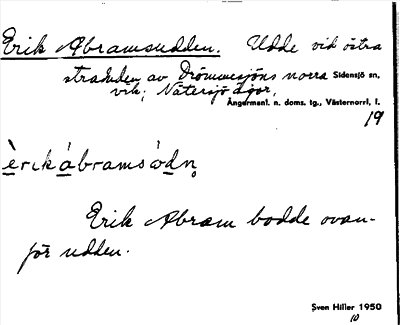 Erik Abramsudden. Udde vid östra
stranden av Drömmesjöns norra Sidensjö sn,
vik; Nätersjö ägor,
Ångermanl. n. doms. tg., Västernorrl. l.
19
èrikábramsòdn̥
Erik Abram bodde ovan-
för udden.
Sven Hiller 1950
10